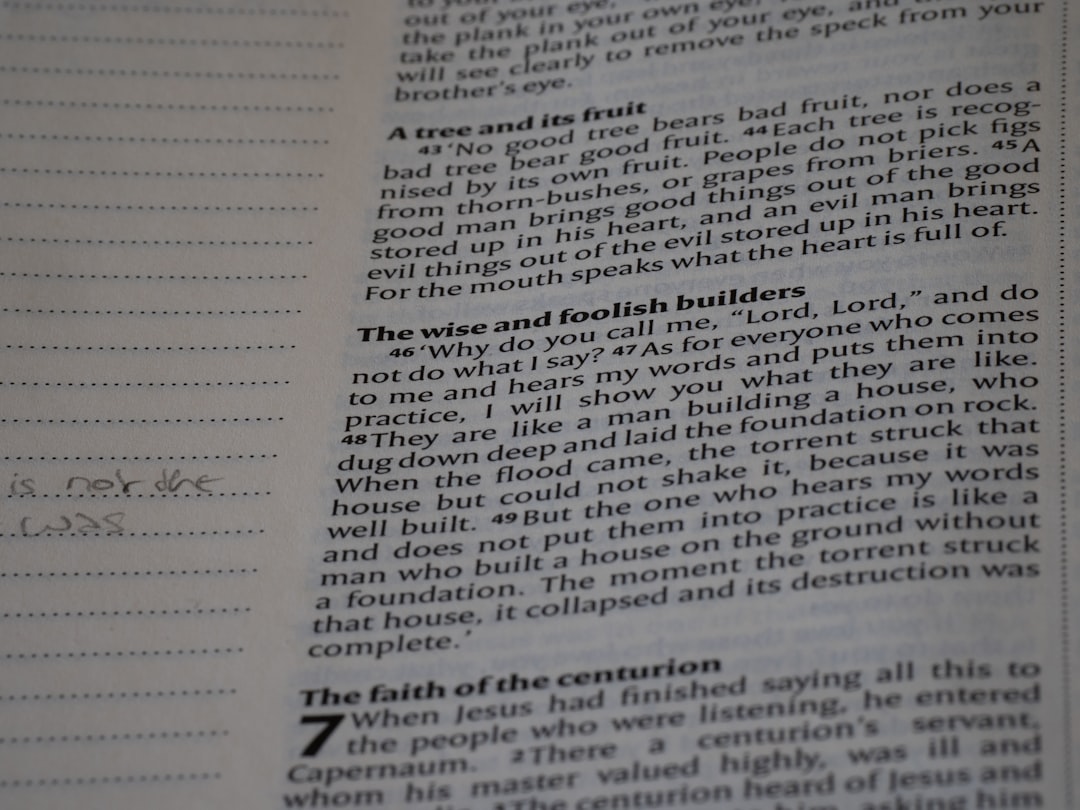 out of your eye,
the plank in your own eye
take the plank out of your eye, and
will see clearly to remove the speck from your
brother's eye.
A tree and its fruit
43 ‘No good tree bears bad fruit, nor does a
bad tree bear good fruit. 44 Each tree is recog-
nised by its own fruit. People do not pick figs
from thorn-bushes, or grapes from briers. 45 A
good man brings good things out of the good
stored up in his heart, and an evil man brings
evil things out of the evil stored up in his heart.
For the mouth speaks what the heart is full of.
The wise and foolish builders
46 ‘Why do you call me, “Lord, Lord,” and do
not do what I say? 47 As for everyone who comes
to me and hears my words and puts them into
practice, I will show you what they are like.
48 They are like a man building a house, who
dug down deep and laid the foundation on rock.
When the flood came, the torrent struck that
house but could not shake it, because it was
well built. 49 But the one who hears my words
and does not put them into practice is like a
man who built a house on the ground without
a foundation. The moment the torrent struck
that house, it collapsed and its destruction was
complete.’
The faith of the centurion
7 When Jesus had finished saying all this to
the people who were listening, he entered
Capernaum. 2 There a centurion's servant,
whom his master valued highly, was ill and
The centurion heard of Jesus and
him, asking him
is not the
was